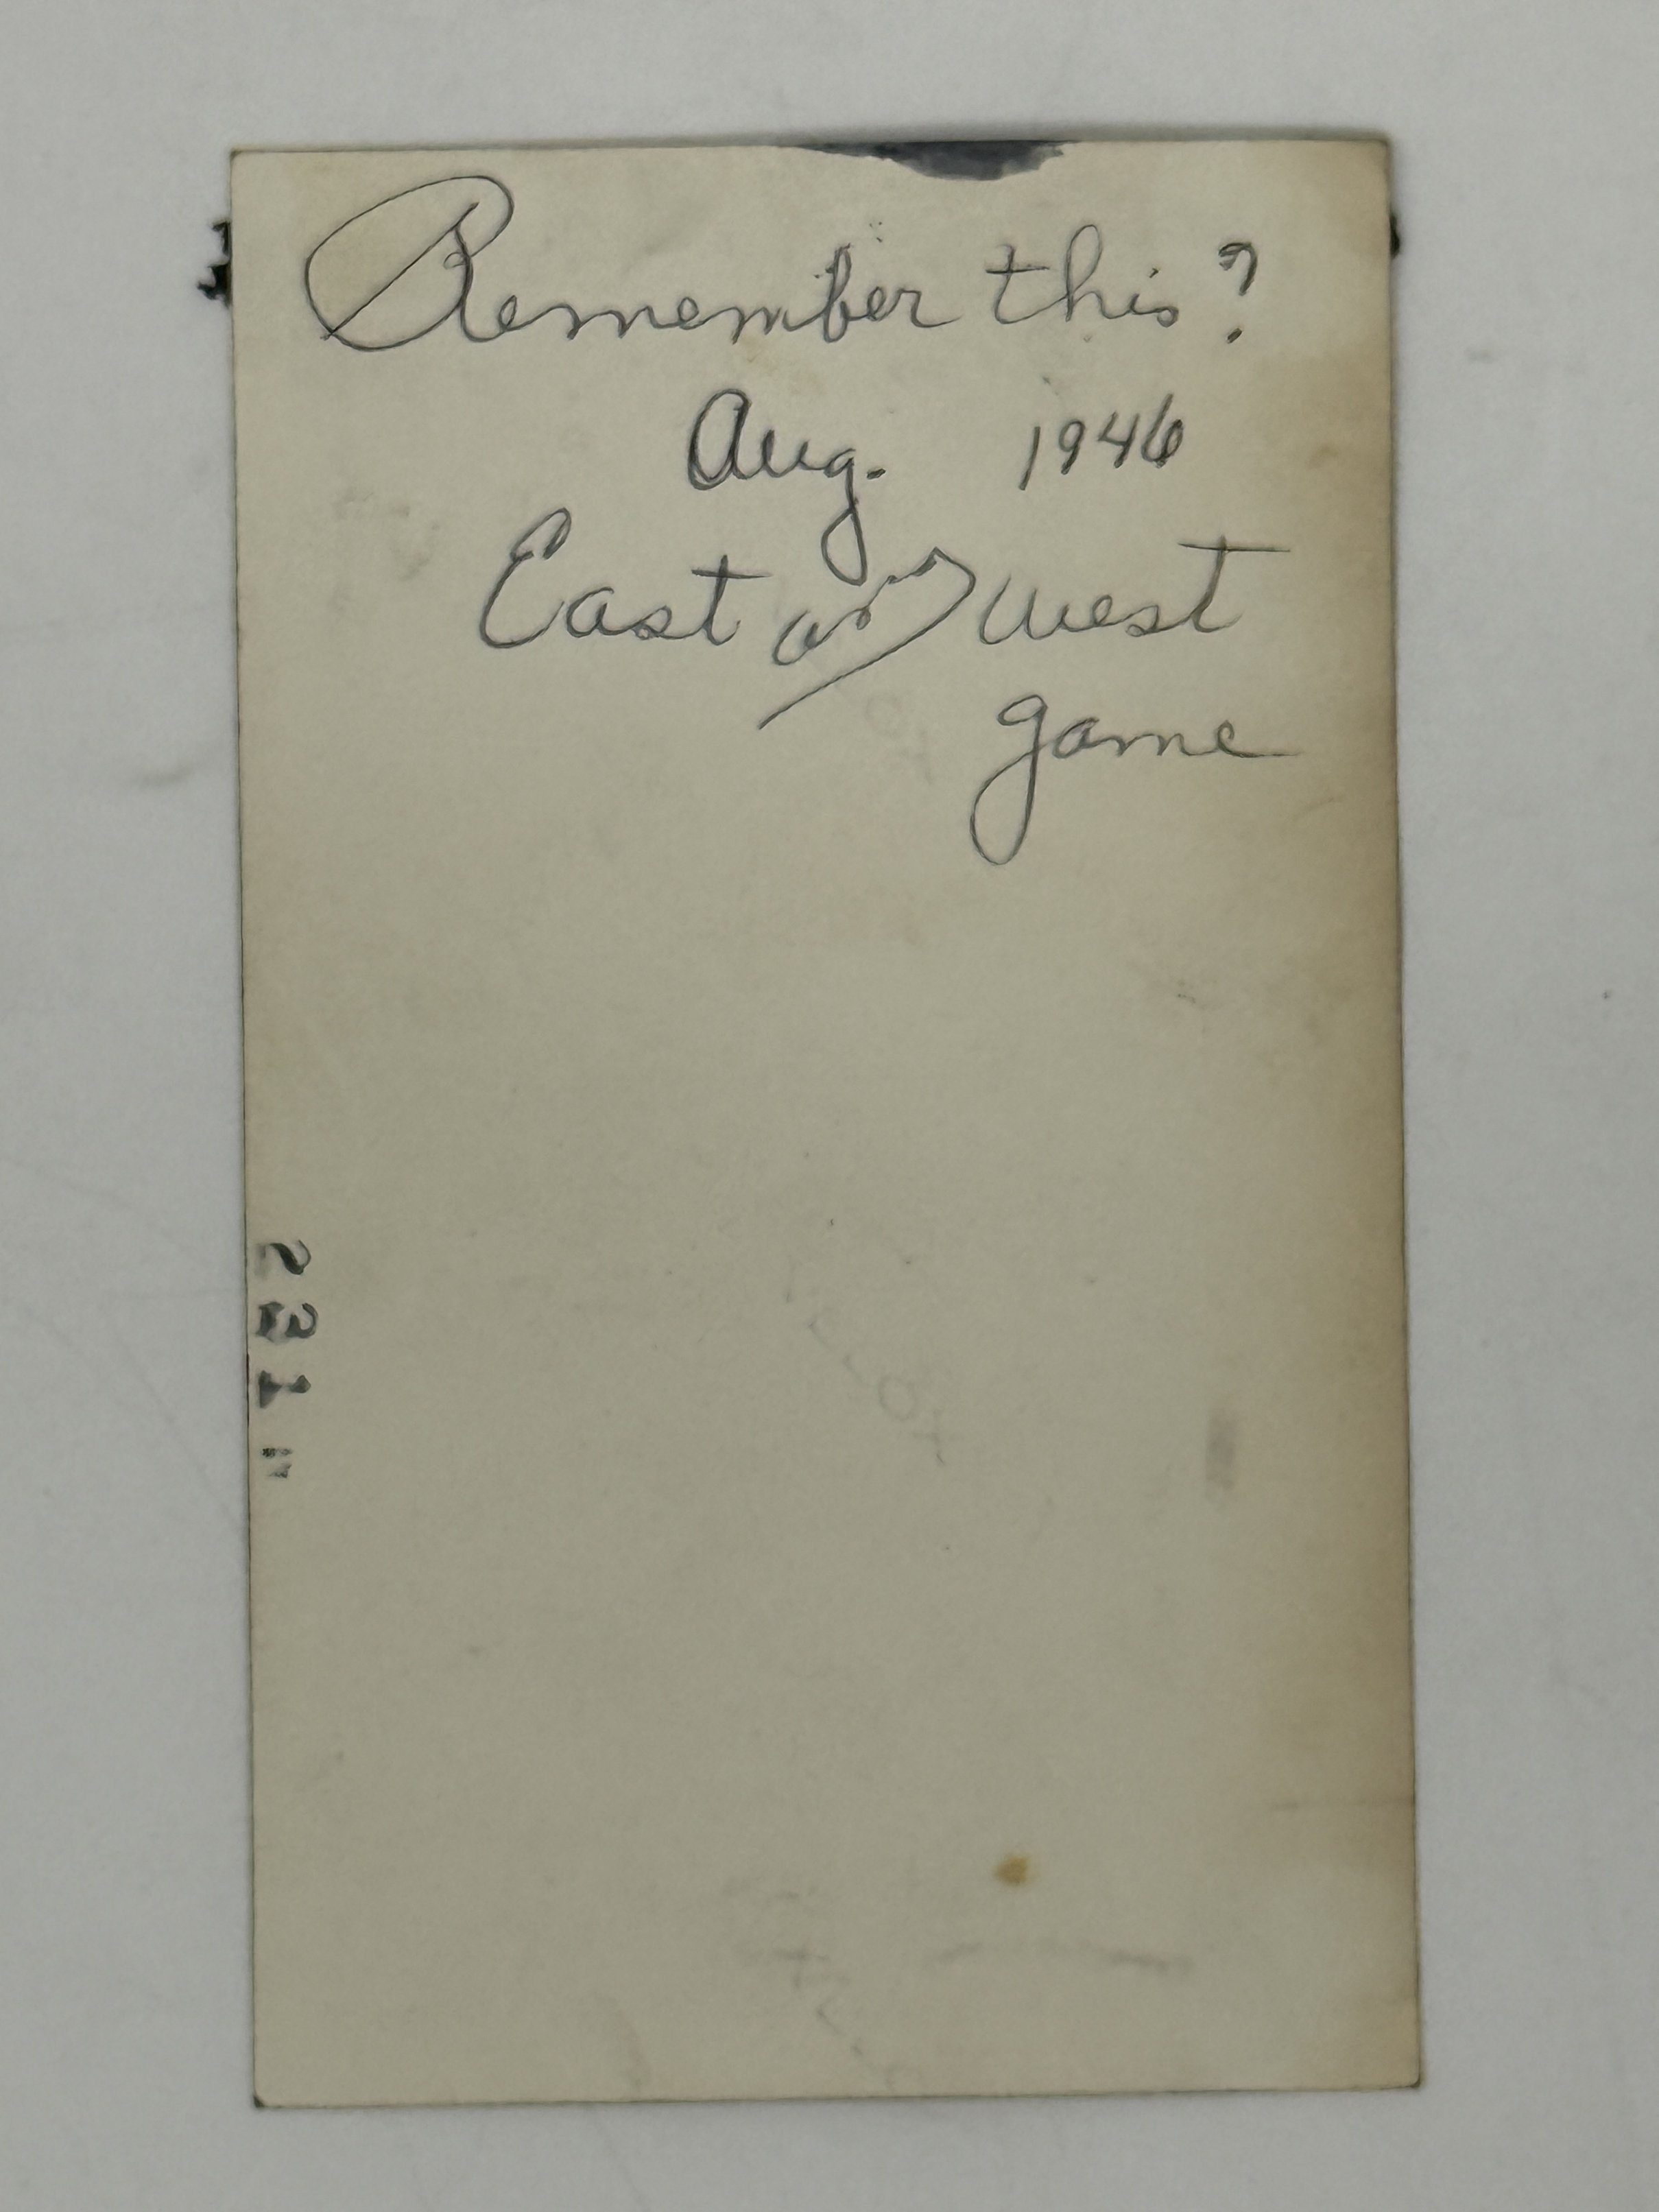 Remember this?
Aug. 1946
East or West
game
221